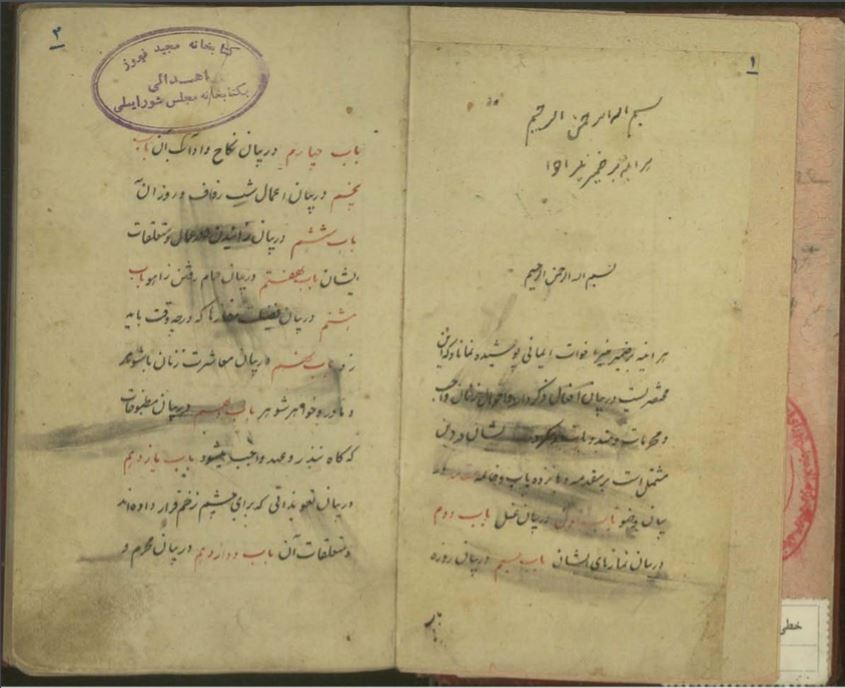 ۱
بسم الله الرحمن الرحیم
بسم الله الرحمن الرحیم
هر آینه بر ضمیر منیر اخوات ایمانی پوشیده نماناد که این
مختصریست در بیان افعال و کردار و احوال زنان و واجب
و محرمات و مندوبات و
مشتمل است بر مقدمه و پانزده باب و خاتمه
بیان وضو باب اول در بیان غسل باب دوم
در بیان نمازهای ایشان باب سیم در بیان روزه
۲
کتابخانه مجید فیروز
اهدائی
بکتابخانه مجلس شورایملی
باب چهارم در بیان نکاح و آداب آن باب
پنجم در بیان اعمال شب زفاف و روز آن
باب ششم در بیان زائیدن و اعمال و متعلقات
ایشان باب هفتم در بیان حمام رفتن زنها و باب
هشتم در بیان نمازها که در چه وقت باید
باب نهم در بیان معاشرت زنان با شوهر
و مادر و خواهر شوهر باب دهم در بیان مطبوخات
که گاه بنذر و عهد واجب میشود باب یازدهم
در بیان تعویذاتی که برای چشم زخم قرار داده‌اند
و متعلقات آن باب دوازدهم در بیان محرم و
خطی